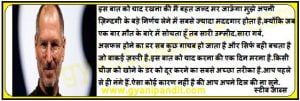 इस बात को याद रखना की मैं बहुत जल्द मर जाऊँगा मुझे अपनी
ज़िन्दगी के बड़े निर्णय लेने में सबसे ज्यादा मददगार होता है,क्योंकि जब
एक बार मौत के बारे में सोचता हूँ तब सारी उम्मीद,सारा गर्व,
असफल होने का डर सब कुछ गायब हो जाता है और सिर्फ वही बचता है
जो वाकई ज़रूरी है.इस बात को याद करना की एक दिन मरना है.किसी
चीज को खोने के डर को दूर करने का सबसे अच्छा तरीका है.आप पहले
से ही नंगे है.ऐसा कोई कारण नहीं है की आप अपने दिल की ना सुने.
www.gyanipandit.com
स्टीव जॉब्स